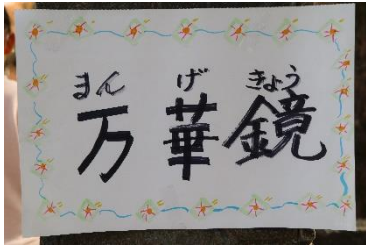 まん げ きょう
万華鏡